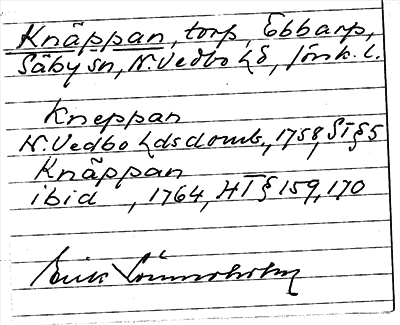 Knäppan, torp, Ebbarp,
Säby sn, N. Vedbo hd, Jönk. l.
Kneppan
N. Vedbo hds domb., 1758, ST § 5
Knäppan
ibid , 1764, HT § 159, 170
Erik